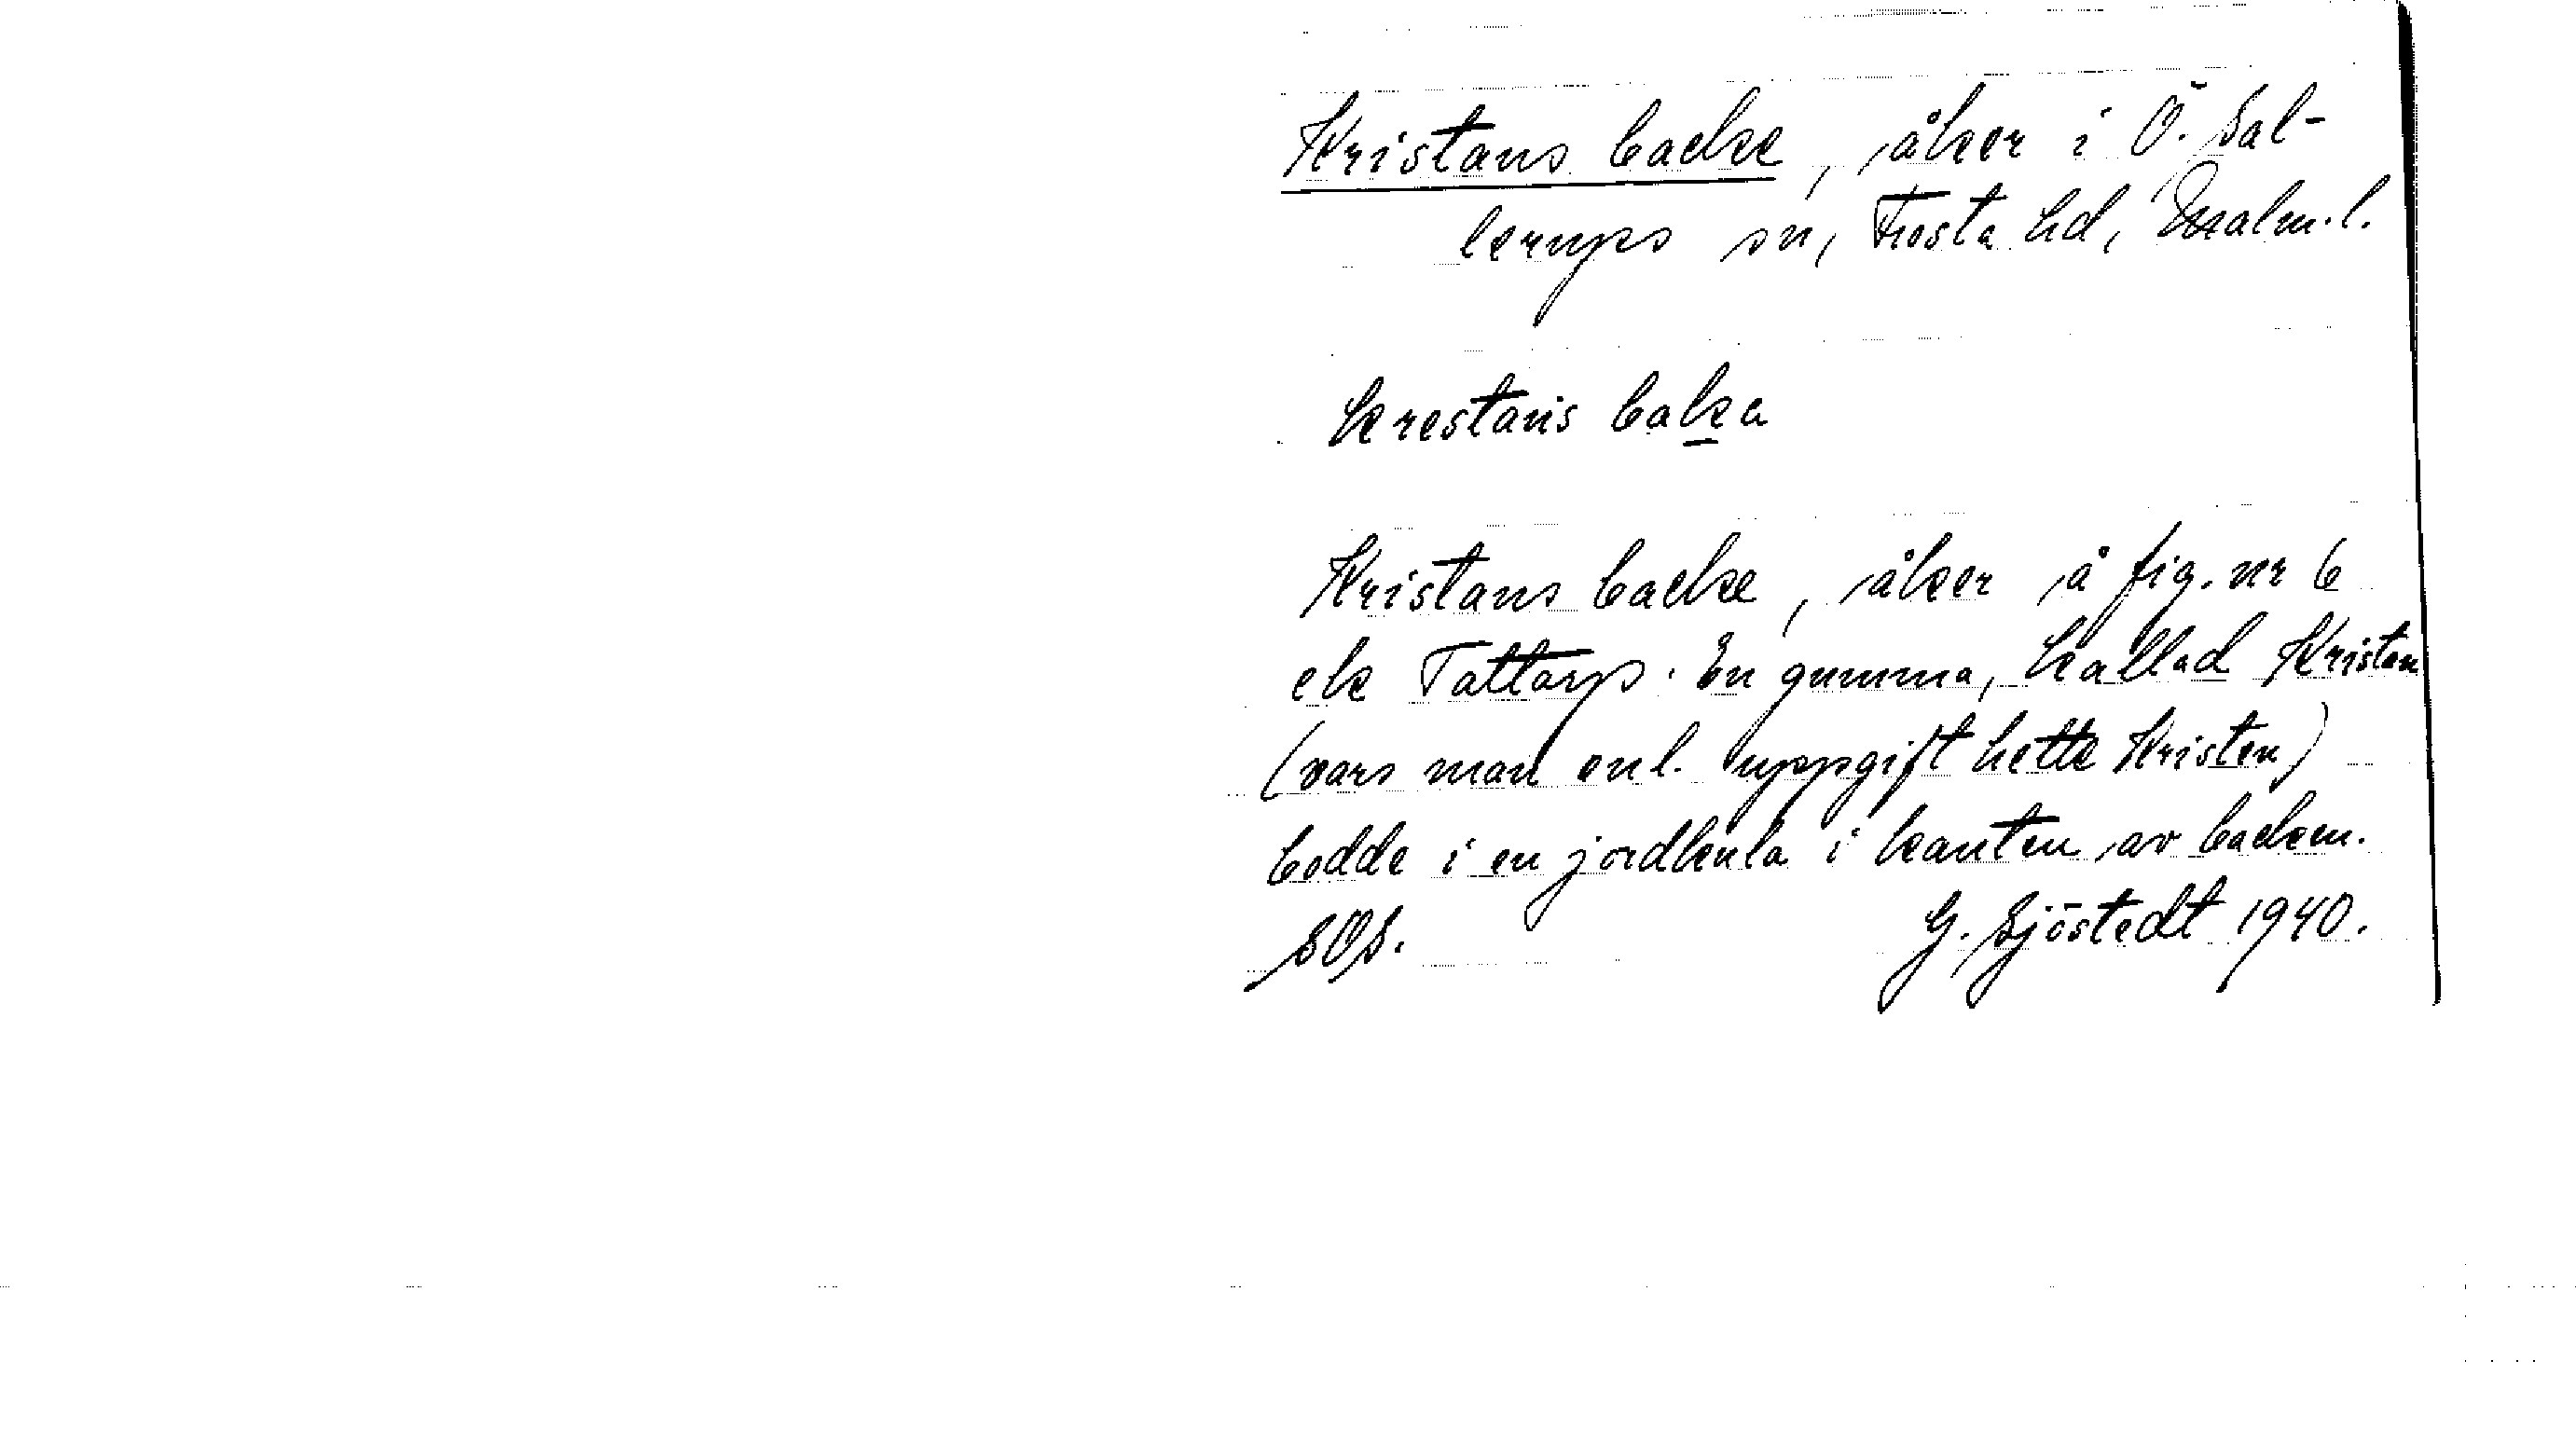 Kristans backe, åker i Ö. Sal-
lerups sn, Frosta hd, Malm.l.
krestans baka
Kristans backe, åker å fig. nr 6
ek Tattarp. En gumma, kallad Kristan
(vars man enl. uppgift hette Kristen)
bodde i en jordkula i kanten av backen.
SOS. G. Sjöstedt 1940.